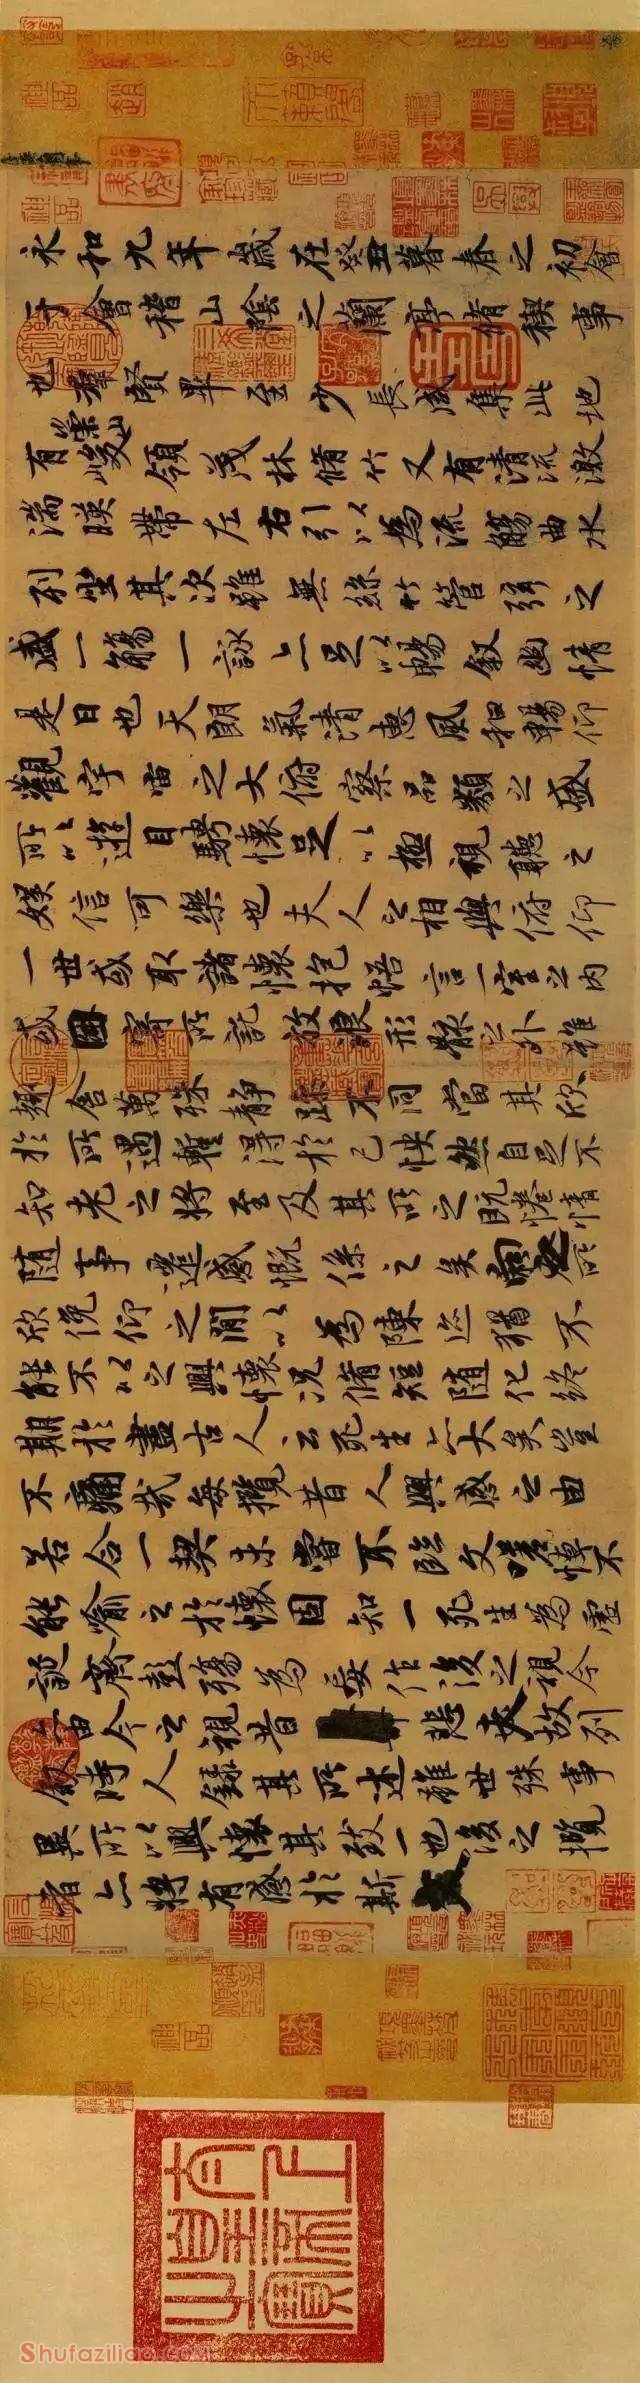 永和九年歲在癸丑暮春之初會
于會稽山陰之蘭亭脩稧事
也羣賢畢至少長咸集此地
有崇山峻領茂林脩竹又有清流激
湍暎帶左右引以為流觴曲水
列坐其次雖無絲竹管弦之
盛一觴一詠亦足以暢敘幽情
是日也天朗氣清惠風和暢仰
觀宇宙之大俯察品類之盛
所以遊目騁懷足以極視聽之
娛信可樂也夫人之相與俯仰
一世或取諸懷抱悟言一室之內
或因寄所託放浪形骸之外雖
趣舍萬殊靜躁不同當其欣
於所遇暫得於己怏然自足不
知老之將至及其所之既惓情
隨事遷感慨係之矣向之所
欣俛仰之閒以為陳迹猶不
能不以之興懷況脩短隨化終
期於盡古人云死生亦大矣豈
不痛哉每攬昔人興感之由
若合一契未嘗不臨文嗟悼不
能喻之於懷固知一死生為虛
誕齊彭殤為妄作後之視今
亦由今之視昔悲夫故列
敘時人錄其所述雖世殊事
異所以興懷其致一也後之攬
者亦將有感於斯文
太上皇帝之寶
Shufaziliao.com